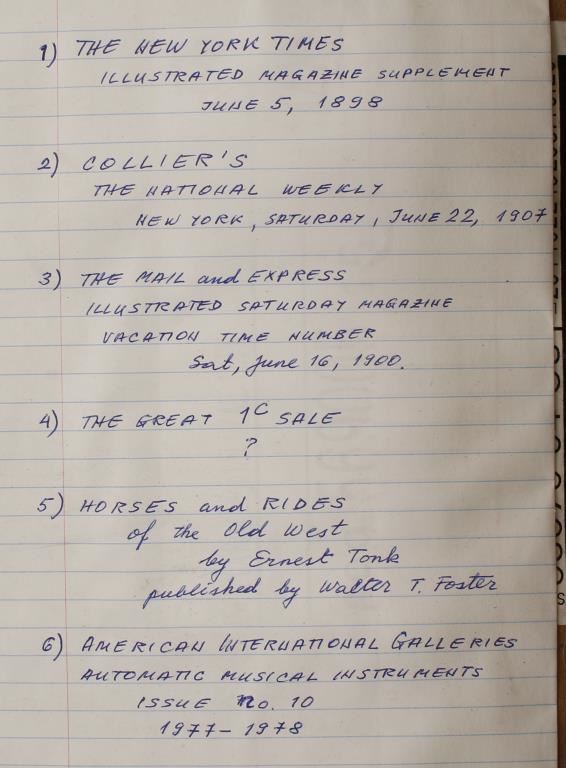 1) THE NEW YORK TIMES
ILLUSTRATED MAGAZINE SUPPLEMENT
JUNE 5, 1898
2) COLLIER'S
THE NATIONAL WEEKLY
NEW YORK, SATURDAY, JUNE 22, 1907
3) THE MAIL and EXPRESS
ILLUSTRATED SATURDAY MAGAZINE
VACATION TIME NUMBER
Sat, June 16, 1900.
4) THE GREAT 1C SALE
?
5) HORSES and RIDES
of the Old West
by Ernest Tonk
published by Walter T. Foster
6) AMERICAN INTERNATIONAL GALLERIES
AUTOMATIC MUSICAL INSTRUMENTS
ISSUE No. 10
1977-1978